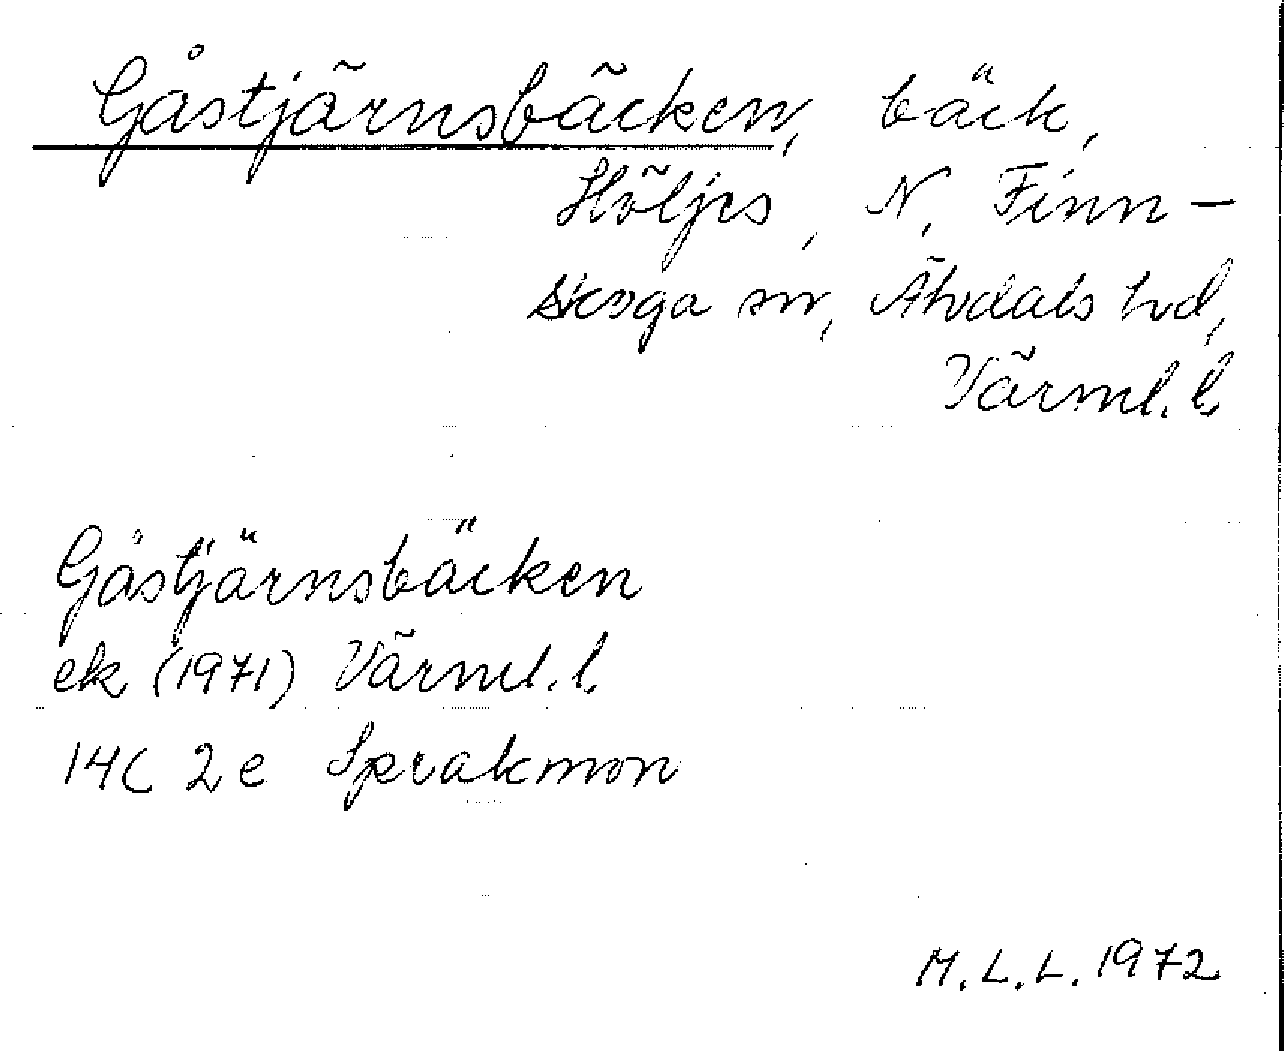 Gåstjärnsbäcken, bäck,
Höljes, N. Finn-
skoga sn, Älvdals hd,
Värml. l.
Gåstjärnsbäcken
ek (1971) Värml. l.
14C 2e Sprakmon
M.L.L. 1972